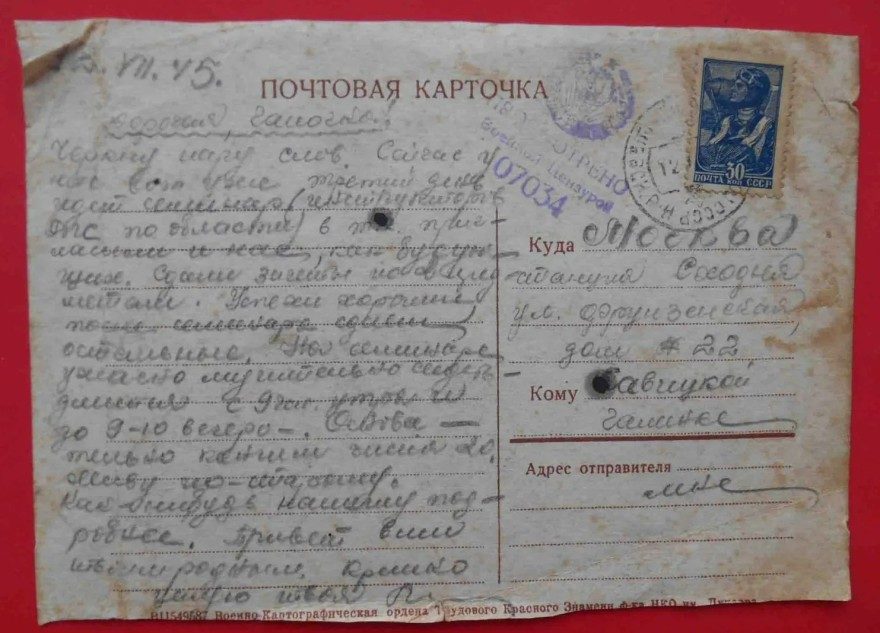 5. VII. 45.
ПОЧТОВАЯ КАРТОЧКА
дорогая, Галочка!
Черкну пару слов. Сейчас у
нас вот уже третий день
идет семинар (инструкторов
по области) в т.ч. приг-
ласили и нас, как будущ-
щих. Сдали зачеты по
Успехи хорошие
после семинара сдаем
остальные. На семинаре
ужасно мучительно сидеть
длится с 9 час. утра и
до 9-10 вечера.
только кончим числа 20.
Живу по-старому.
Как нибудь напишу под-
робнее. Привет всем
твоим родным. крепко
целую твоя
ПРОСМОТРЕНО
Военной Цензурой
07034
30
ПОЧТА КОП СССР
Куда Москва
станция Сходня
ул. Фрунзенская
дом № 22
Кому Савицкой
Галине
Адрес отправителя
В11549687 Военно-Картографическая ордена Трудового Красного Знамени ф-ка НКО им. Дунаева